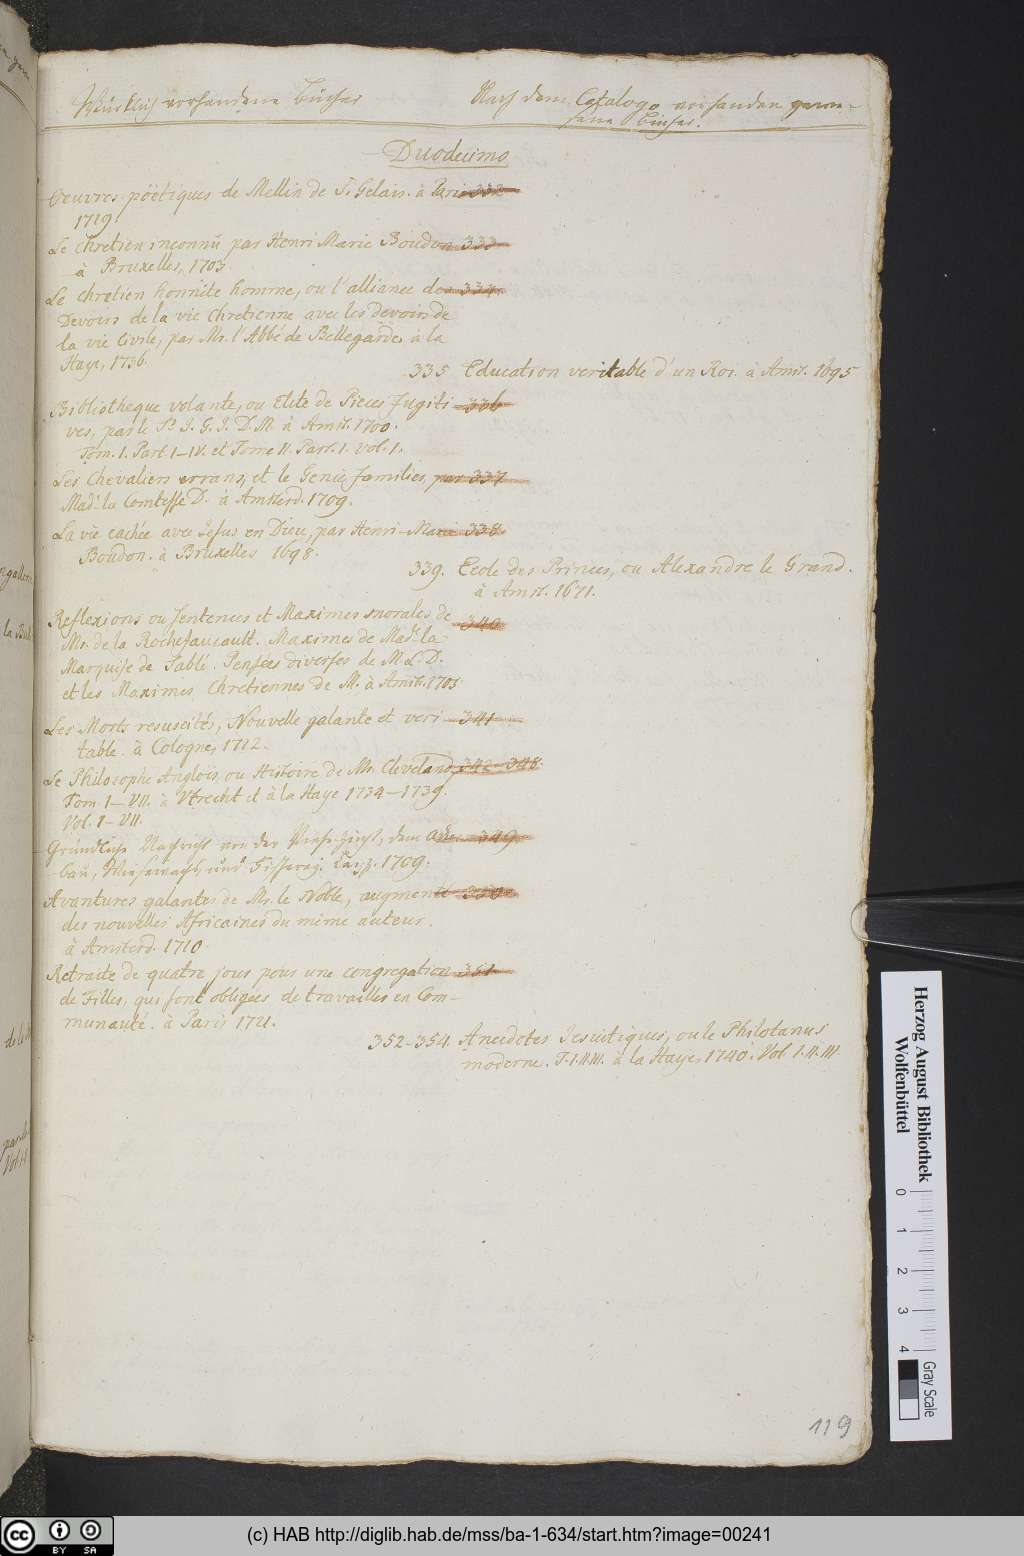 Würklich vorhandene Bücher
Nach dem Catalogo vorhanden gewe-
sene Bücher.
Duodecimo
Oeuvres pöetiques de Mellin de St. Gelais. à Paris 332
1719.
Le chretien inconnû par Henri Marie Boudon 333
à Bruxelles, 1703
Le chretien honnête homme, ou l'alliance des 334.
Devoirs de la vie Chretienne avec les devoirs de
la vie Civile, par Mr. l'Abbé de Bellegarde, à la
Haye, 1736.
335 Education veritable d'un Roi. à Amst. 1695
Bibliotheque volante, ou Elite de Pieces fugiti- 336
ves, par le Sr. J. G. J. D. M. à Amst. 1700.
Tom. I. Part. I-IV. et Tome II. Part. I. Vol. I.
Les Chevaliers errans, et le Genie familier, par 337
Made. la Comtesse D. à Amsterd. 1709.
La vie cachée avec Jesus en Dieu, par Henri-Marie 338
Boudon. à Bruxelles 1698.
339. Ecole des Princes, ou Alexandre le Grand.
à Amst. 1671.
Reflexions ou sentences et Maximes morales de
340
Mr. de la Rochefaucault. Maximes de Made. la
Marquise de Sablé. Pensées diverses de M. L. D.
et les Maximes Chretiennes de M. à Amst. 1705
Les Morts resuscités, Nouvelle galante et veri- 341
table. à Cologne, 1712.
Le Philosophe Anglois, ou Histoire de Mr. Cleveland, 342-348.
Tom. I-VII. à Utrecht et à la Haye 1734-1739.
Vol. I-VII.
Gründliche Nachricht von der Viehe-Zucht, dem Acker- 349
bau, Wiesewachs, und Fischerey. Leipz. 1709.
Avantures galantes de Mr. le Noble, augmenté 350
des nouvelles Africaines du même auteur.
à Amsterd. 1710
Retraite de quatre jours pour une congregation 351
de Filles, qui sont obligées de travailler en Com-
munauté. à Paris 1721.
352-354. Anecdotes Jesuitiques, ou le Philotanus
moderne. T. I. II. III. à la Haye, 1740. Vol. I. II. III
119
Herzog August Bibliothek
Wolfenbüttel
0 1 2 3 4
Gray Scale
cc BY SA
(c) HAB http://diglib.hab.de/mss/ba-1-634/start.htm?image=00241